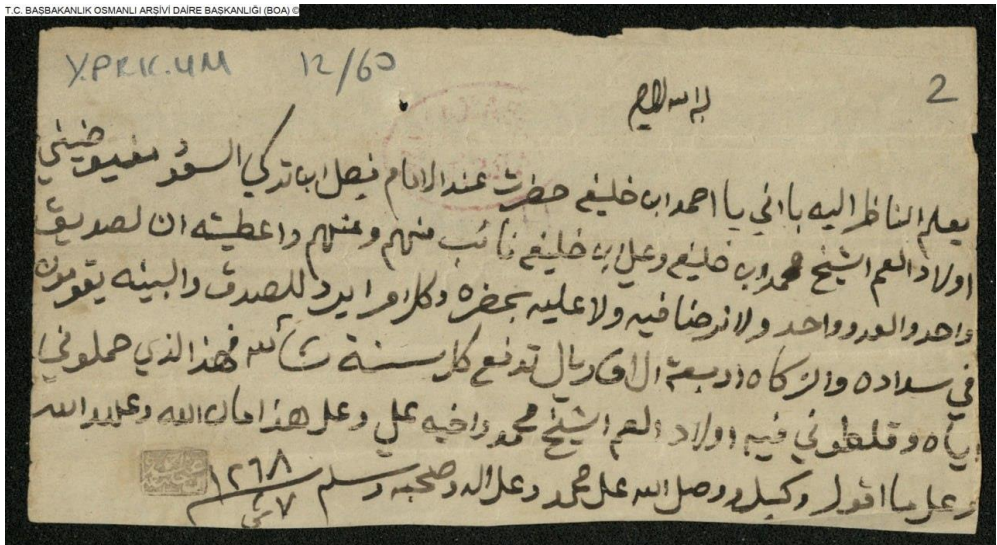 T.C. BAŞBAKANLIK OSMANLI ARŞİVİ DAİRE BAŞKANLIĞI (BOA) ©
Y.PRK.UM 12/60
2
يعلم الناظر اليه باني يا احمد ابن خليفه حضرت عند الامام فيصل ابن تركي السعود
اولاد العم الشيخ محمد ابن خليفه وعلي بن خليفه نائب منهم وعنهم واعطيته ان لصديق
واحد والعدو واحد ولا نرضا فيه ولا عليه بمضره وكل امر ايرد للصدق والبينه يقومون
في سداده والزكاه اربعة الاف ريال تدفع كل سنة فهذا الذي حملوني
اياه وقلطوني فيه اولاد العم الشيخ محمد واخيه علي وعلى هذا امان الله وعهد الله
وعلى ما اقول وكيل وصل الله على محمد وعلى اله وصحبه وسلم ١٢٦٨